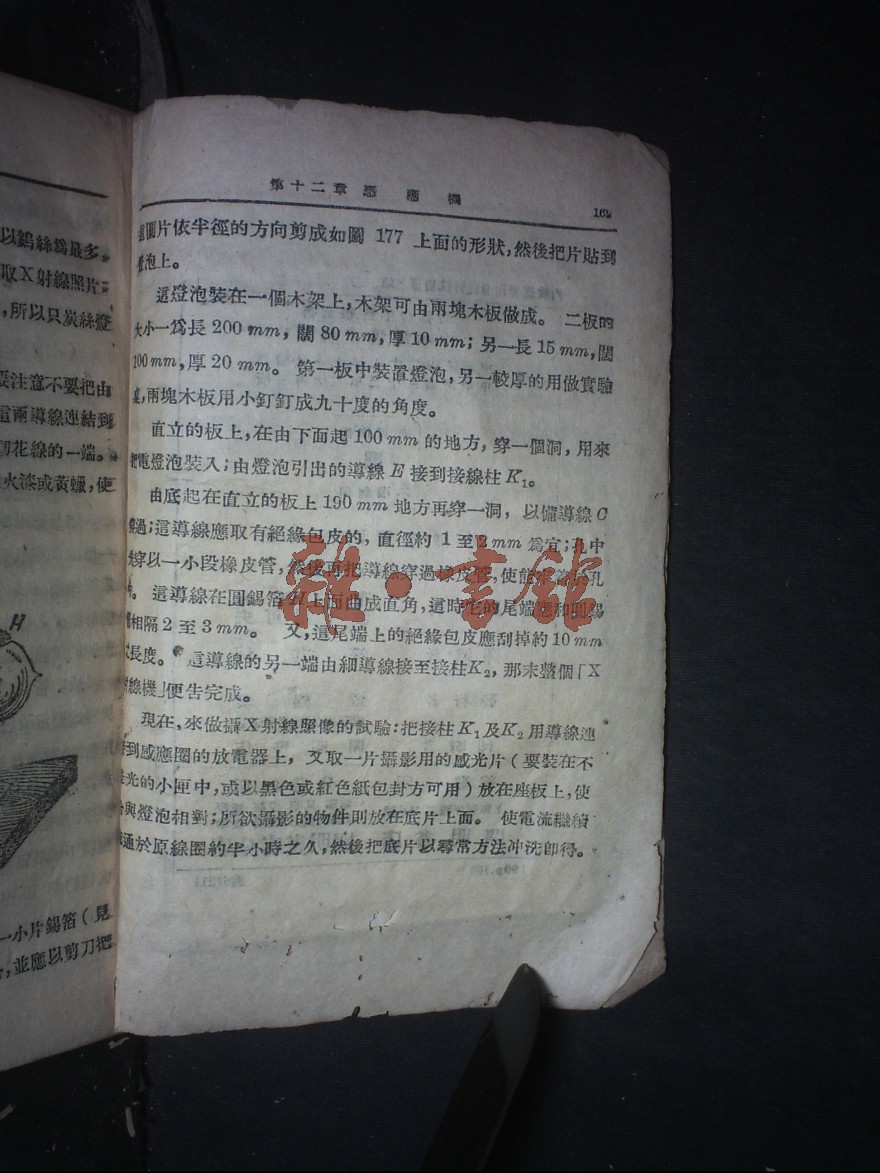 以鎢絲爲最多。
取X射線照片，
，所以只炭絲燈
要注意不要把由
這兩導線連結到
切花線的一端。
火漆或黃蠟，使
H
一小片錫箔（見
，並應以剪刀把
第十二章 感應機
圓片依半徑的方向剪成如圖 177 上面的形狀，然後把片貼到
燈泡上。
這燈泡裝在一個木架上，木架可由兩塊木板做成。 二板的
大小一爲長 200 mm，闊 80 mm，厚 10 mm；另一長 15 mm，闊
100 mm，厚 20 mm。 第一板中裝置燈泡，另一較厚的用做實驗
，兩塊木板用小釘釘成九十度的角度。
直立的板上，在由下面起 100 mm 的地方，穿一個洞，用來
把電燈泡裝入；由燈泡引出的導線 E 接到接線柱 K₁。
由底起在直立的板上 190 mm 地方再穿一洞，以備導線 C
過；這導線應取有絕緣包皮的，直徑約 1 至 2 mm 爲宜；孔中
穿以一小段橡皮管，然後再把導線穿過橡皮管，使能 孔
。 這導線在圓錫箔 H 上面曲成直角，這時它的尾端應和圓錫
相隔 2 至 3 mm。 又，這尾端上的絕緣包皮應刮掉約 10 mm
長度。 這導線的另一端由細導線接至接柱 K₂，那末整個「X
線機」便告完成。
現在，來做攝X射線照像的試驗：把接柱 K₁ 及 K₂ 用導線連
到感應圈的放電器上， 又取一片攝影用的感光片（要裝在不
光的小匣中，或以黑色或紅色紙包封方可用）放在座板上，使
與燈泡相對；所欲攝影的物件則放在底片上面。 使電流繼續
通於原線圈約半小時之久，然後把底片以尋常方法冲洗卽得。
雜·書館